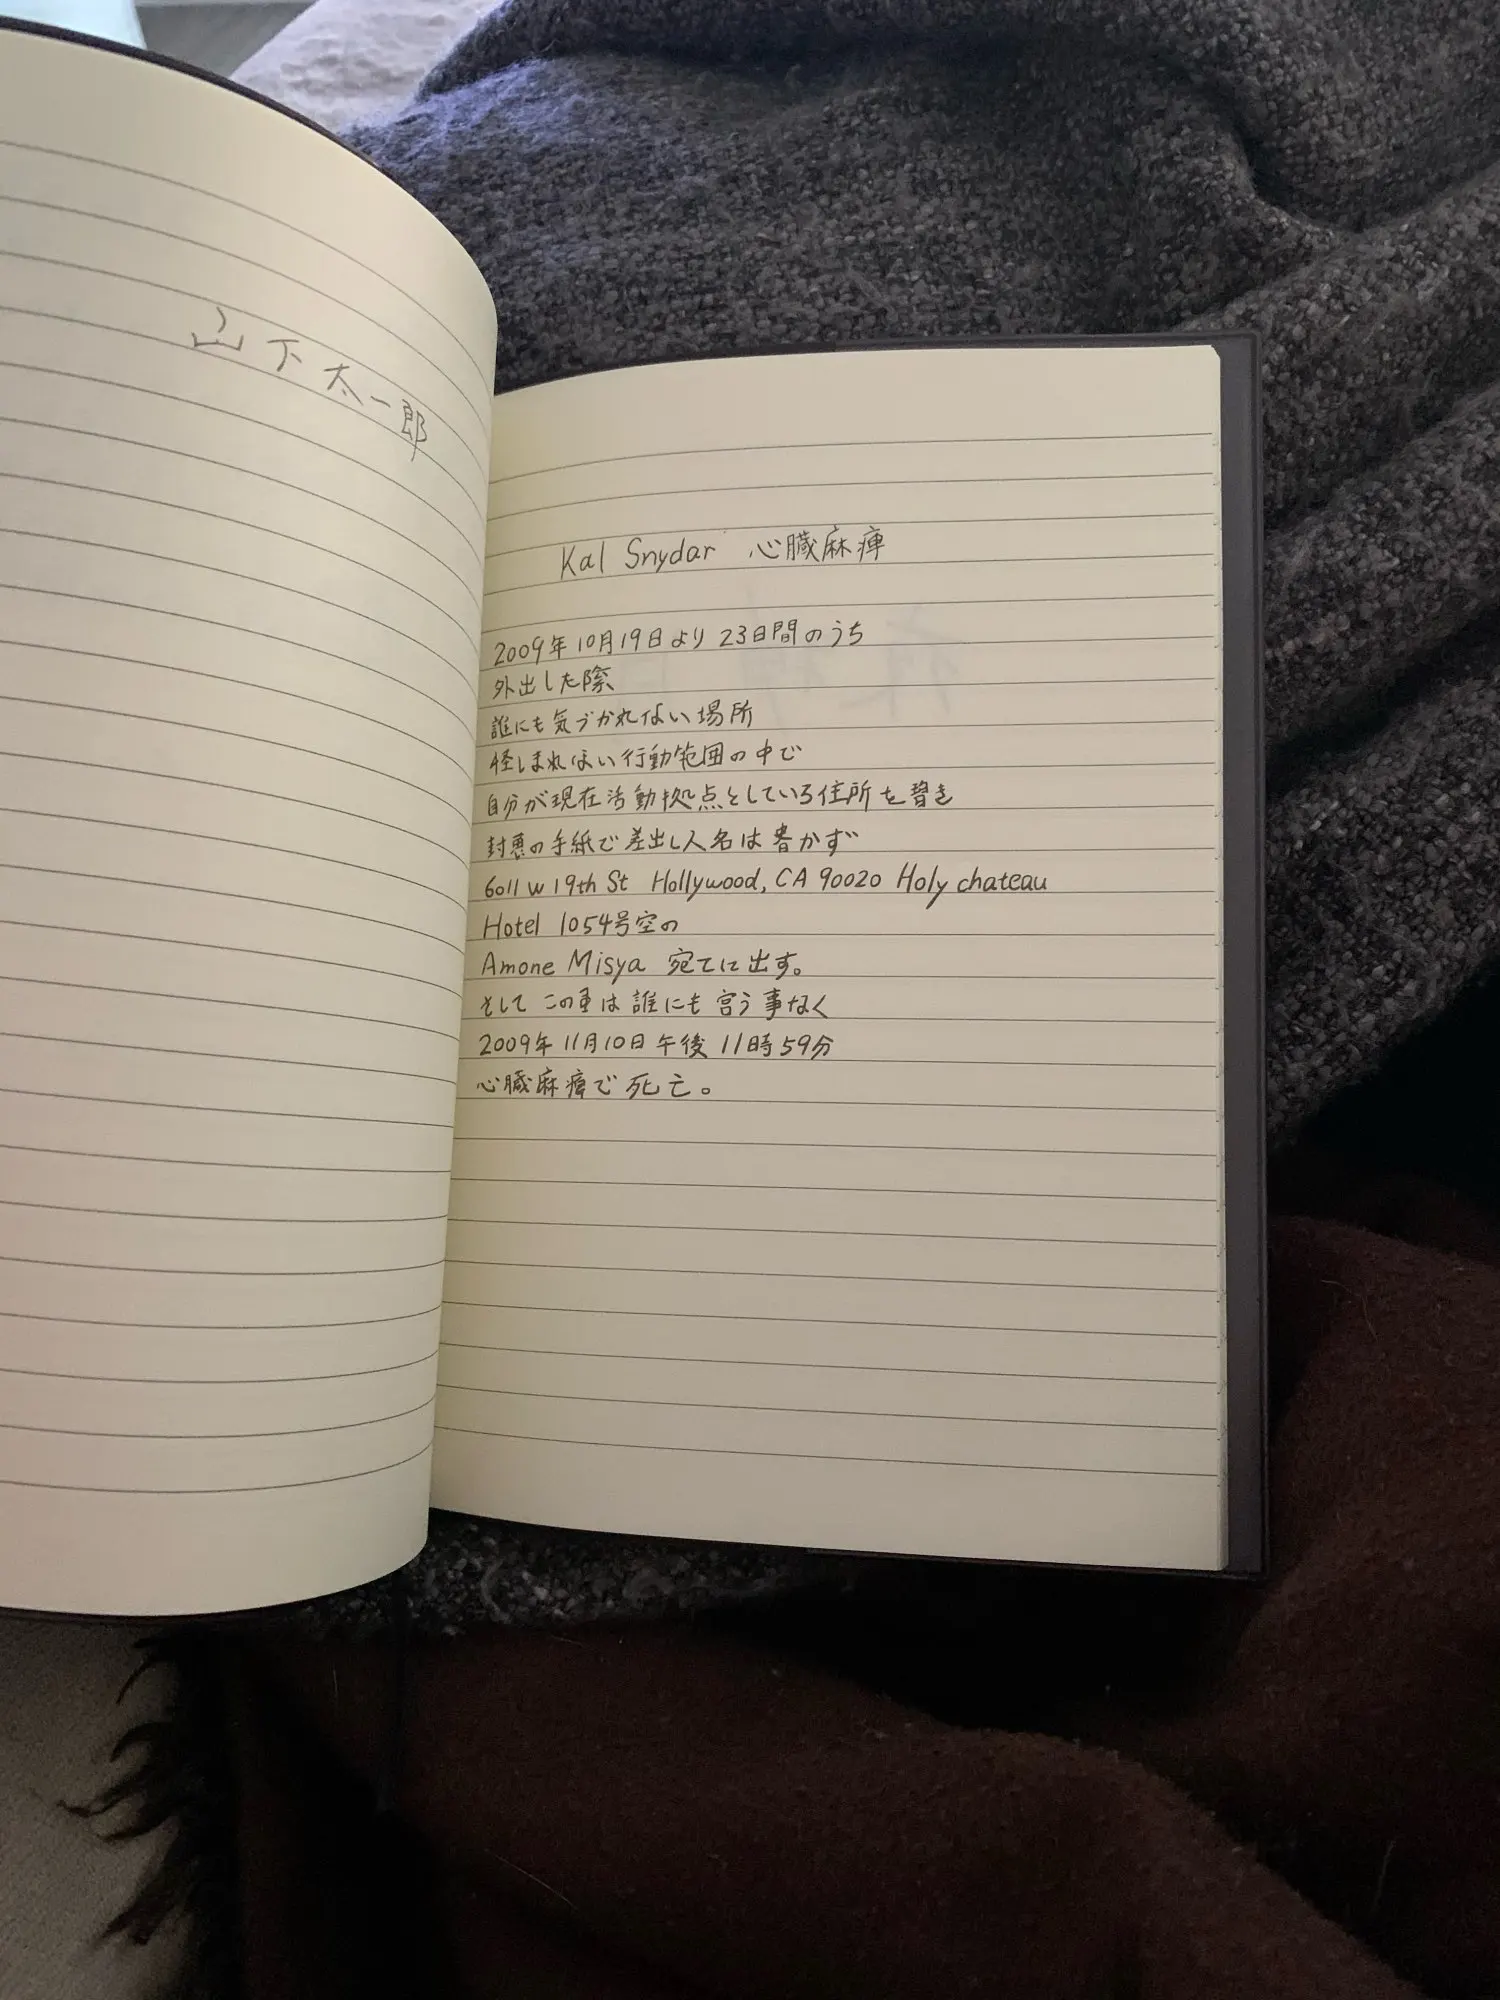 山下太一郎
Kal Snydar 心臓麻痺
2009年10月19日より23日間のうち
外出した際
誰にも気づかれない場所
怪しまれない行動範囲の中で
自分が現在活動拠点としている住所を書き
封書の手紙で差出し人名は書かず
6011 W 19th St Hollywood, CA 90020 Holy chateau
Hotel 1054号室の
Amone Misya 宛てに出す。
そしてこの事は誰にも言う事なく
2009年11月10日午後11時59分
心臓麻痺で死亡。